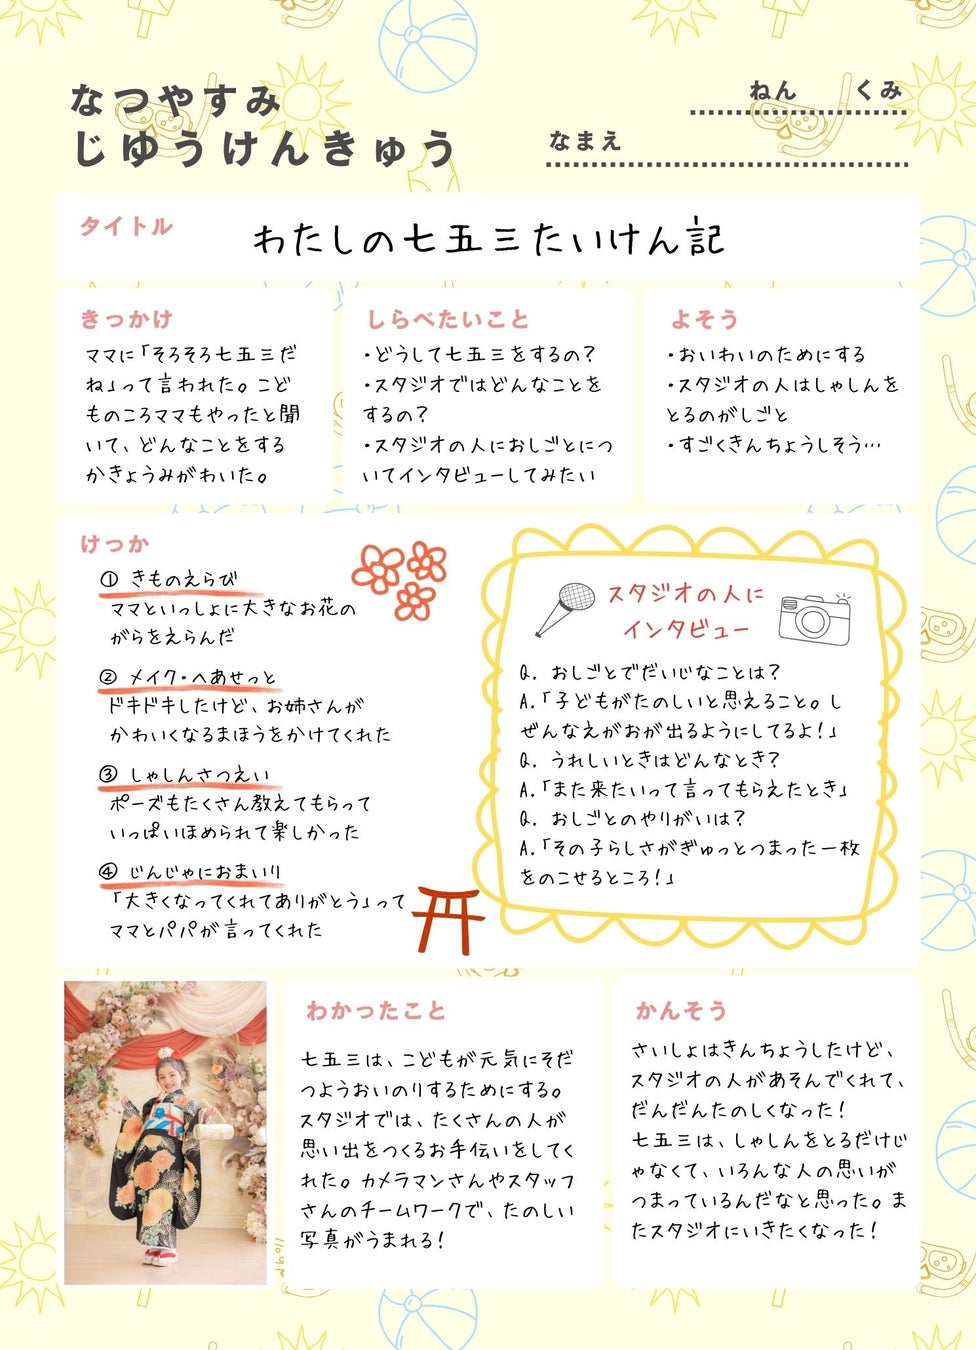 なつやすみ
じゆうけんきゅう
ねん　くみ
なまえ
タイトル
わたしの七五三たいけん記
きっかけ
ママに「そろそろ七五三だ
ね」って言われた。こど
ものころママもやったと聞
いて、どんなことをする
かきょうみがわいた。
しらべたいこと
・どうして七五三をするの？
・スタジオではどんなことを
するの？
・スタジオの人におしごとにつ
いてインタビューしてみたい
よそう
・おいわいのためにする
・スタジオの人はしゃしんを
とるのがしごと
・すごくきんちょうしそう…
けっか
① きものえらび
ママといっしょに大きなお花の
がらをえらんだ
② メイク・へあせっと
ドキドキしたけど、お姉さんが
かわいくなるまほうをかけてくれた
③ しゃしんさつえい
ポーズもたくさん教えてもらって
いっぱいほめられて楽しかった
④ じんじゃにおまいり
「大きくなってくれてありがとう」って
ママとパパが言ってくれた
スタジオの人に
インタビュー
Q. おしごとでだいじなことは？
A.「子どもがたのしいと思えること。し
ぜんなえがおが出るようにしてるよ！」
Q. うれしいときはどんなとき？
A.「また来たいって言ってもらえたとき」
Q. おしごとのやりがいは？
A.「その子らしさがぎゅっとつまった一枚
をのこせるところ！」
わかったこと
七五三は、こどもが元気にそだ
つようおいのりするためにする。
スタジオでは、たくさんの人が
思い出をつくるお手伝いをしてく
れた。カメラマンさんやスタッフ
さんのチームワークで、たのしい
写真がうまれる！
かんそう
さいしょはきんちょうしたけど、
スタジオの人があそんでくれて、
だんだんたのしくなった！
七五三は、しゃしんをとるだけじ
ゃなくて、いろんな人の思いが
つまっているんだなと思った。ま
たスタジオにいきたくなった！